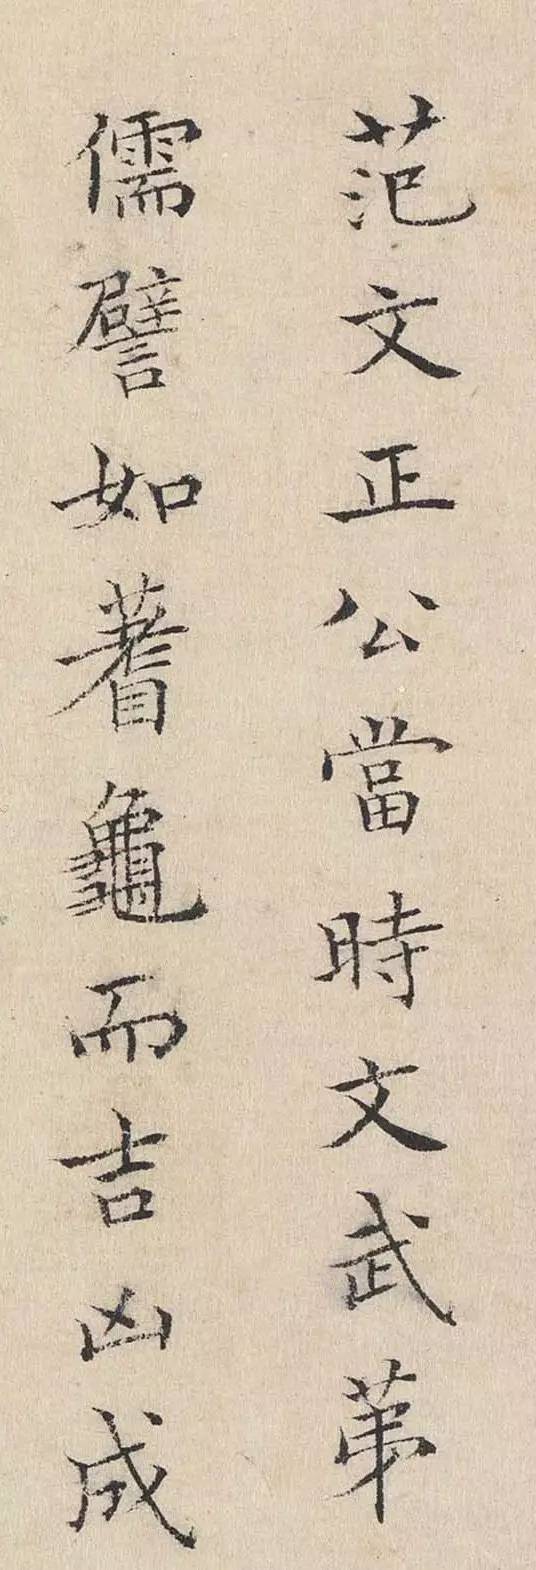 范文正公當時文武苐
儒譬如蓍龜而吉凶成